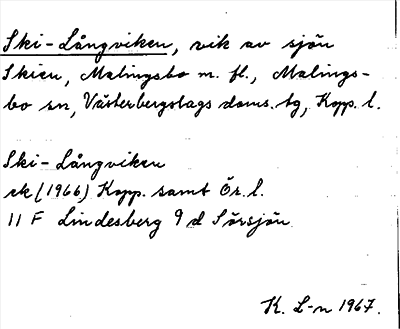 Ski-Långviken, vik av sjön
Skien, Malingsbo m. fl., Malings-
bo sn, Västerbergslags doms. tg, Kopp. l.
Ski-Långviken
ek (1966) Kopp. samt Ör. l.
11 F Lindesberg 9 d Sörsjön
K. L-n 1967.